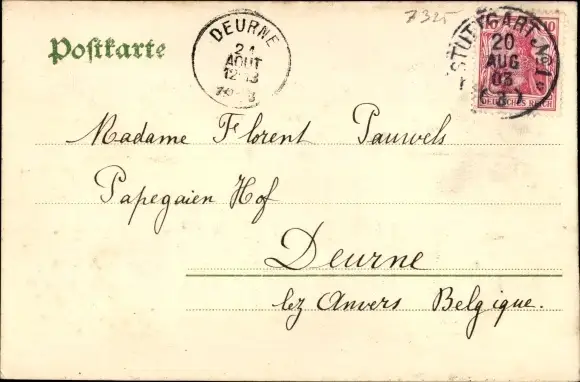 7325
Postkarte
DEURNE
21
AOUT
12-13
STUTTGART No 1
20
AUG
03
10
DEUTSCHES REICH
Madame Florent Pauwels
Papegaien Hof
Deurne
lez Anvers Belgique.